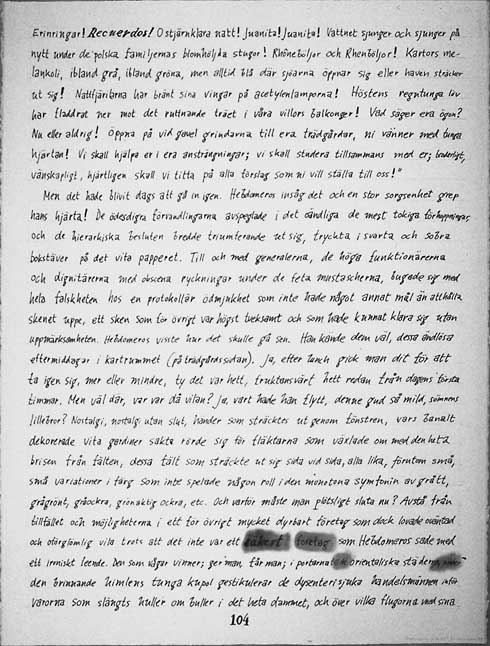 Erinringar! Recuerdos! O stjärnklara natt! Juanita! Juanita! Vattnet sjunger och sjunger på
nytt under de polska familjernas blomhöljda stugor! Rhôneböljor och Rhenböljor! Kartors me-
lankoli, ibland grå, ibland gröna, men alltid blå där sjöarna öppnar sig eller haven sträcker
ut sig! Nattfjärilarna har bränt sina vingar på acetylenlamporna! Höstens regntunga löv
har fladdrat ner mot det ruttnande träet i våra villors balkonger! Vad säger era ögon?
Nu eller aldrig! Öppna på vid gavel grindarna till era trädgårdar, ni vänner med tunga
hjärtan! Vi skall hjälpa er i era ansträngningar; vi skall studera tillsammans med er; broderligt,
vänskapligt, hjärtligen skall vi titta på alla förslag som ni vill ställa till oss!"
Men det hade blivit dags att gå in igen. Hebdomeros insåg det och en stor sorgsenhet grep
hans hjärta! De ödesdigra förvandlingarna avspeglade i det oändliga de mest tokiga förhoppningar,
och de hierarkiska besluten bredde triumferande ut sig, tryckta i svarta och sobra
bokstäver på det vita papperet. Till och med generalerna, de höga funktionärerna
och dignitärerna med obscena ryckningar under de feta mustascherna, bugade sig med
hela falskheten hos en protokollär ödmjukhet som inte hade något annat mål än att hålla
skenet uppe, ett sken som för övrigt var högst tveksamt och som hade kunnat klara sig utan
uppmärksamheten. Hebdomeros visste hur det skulle gå sen. Han kände dem väl, dessa ändlösa
eftermiddagar i kartrummet (på trädgårdssidan). Ja, efter lunch gick man dit för att
ta igen sig, mer eller mindre, ty det var hett, fruktansvärt hett redan från dagens första
timmar. Men väl där, var var då vilan? Ja, vart hade han flytt, denne gud så mild, sömnens
lillebror? Nostalgi, nostalgi utan slut, händer som sträcktes ut genom fönstren, vars banalt
dekorerade vita gardiner sakta rörde sig för fläktarna som växlade om med den heta
brisen från fälten, dessa fält som sträckte ut sig sida vid sida, alla lika, förutom små,
små variationer i färg som inte spelade någon roll i den monotona symfonin av grått,
grågrönt, gråockra, grönaktig ockra, etc. Och varför måste man plötsligt sluta nu? Avstå från
tillfället och möjligheterna i ett för övrigt mycket dyrbart företag som dock lovade oväntad
och oförglömlig vila trots att det inte var ett säkert företag som Hebdomeros sade med
ett ironiskt leende. Den som vågar vinner; ger man, får man; i portarna till orientaliska städer under
den brinnande himlens tunga kupol gestikulerar de dysenterisjuka handelsmännen inför
varorna som slängts huller om buller i det heta dammet, och över vilka flugorna med sina
104